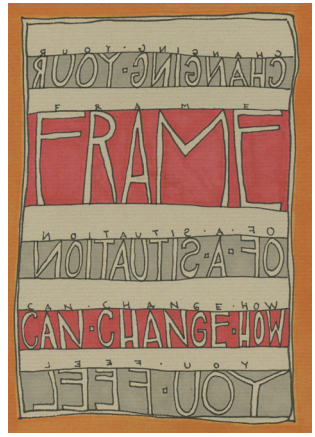 CHANGING·YOUR
CHANGING·YOUR
FRAME
FRAME
OF·A·SITUATION
OF·A·SITUATION
CAN·CHANGE·HOW
CAN·CHANGE·HOW
YOU·FEEL
YOU·FEEL